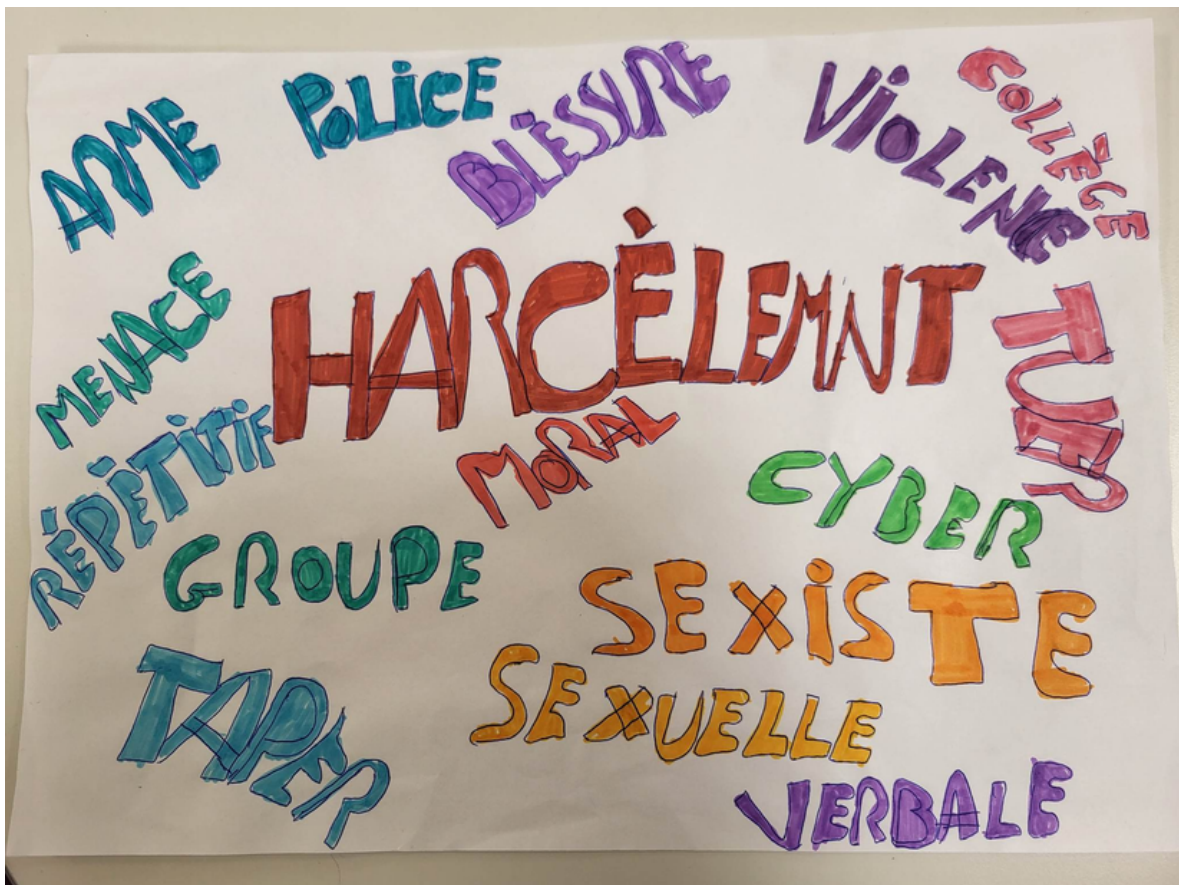 POLiCE
BLÈSSURE
ViOLENCE
COLLÈGE
MENACE
HARCÈLEMNT
TUER
RÉPÉTITIF
MORAL
CYBER
GROUPE
SEXiSTE
TAPER
SEXUELLE
VERBALE